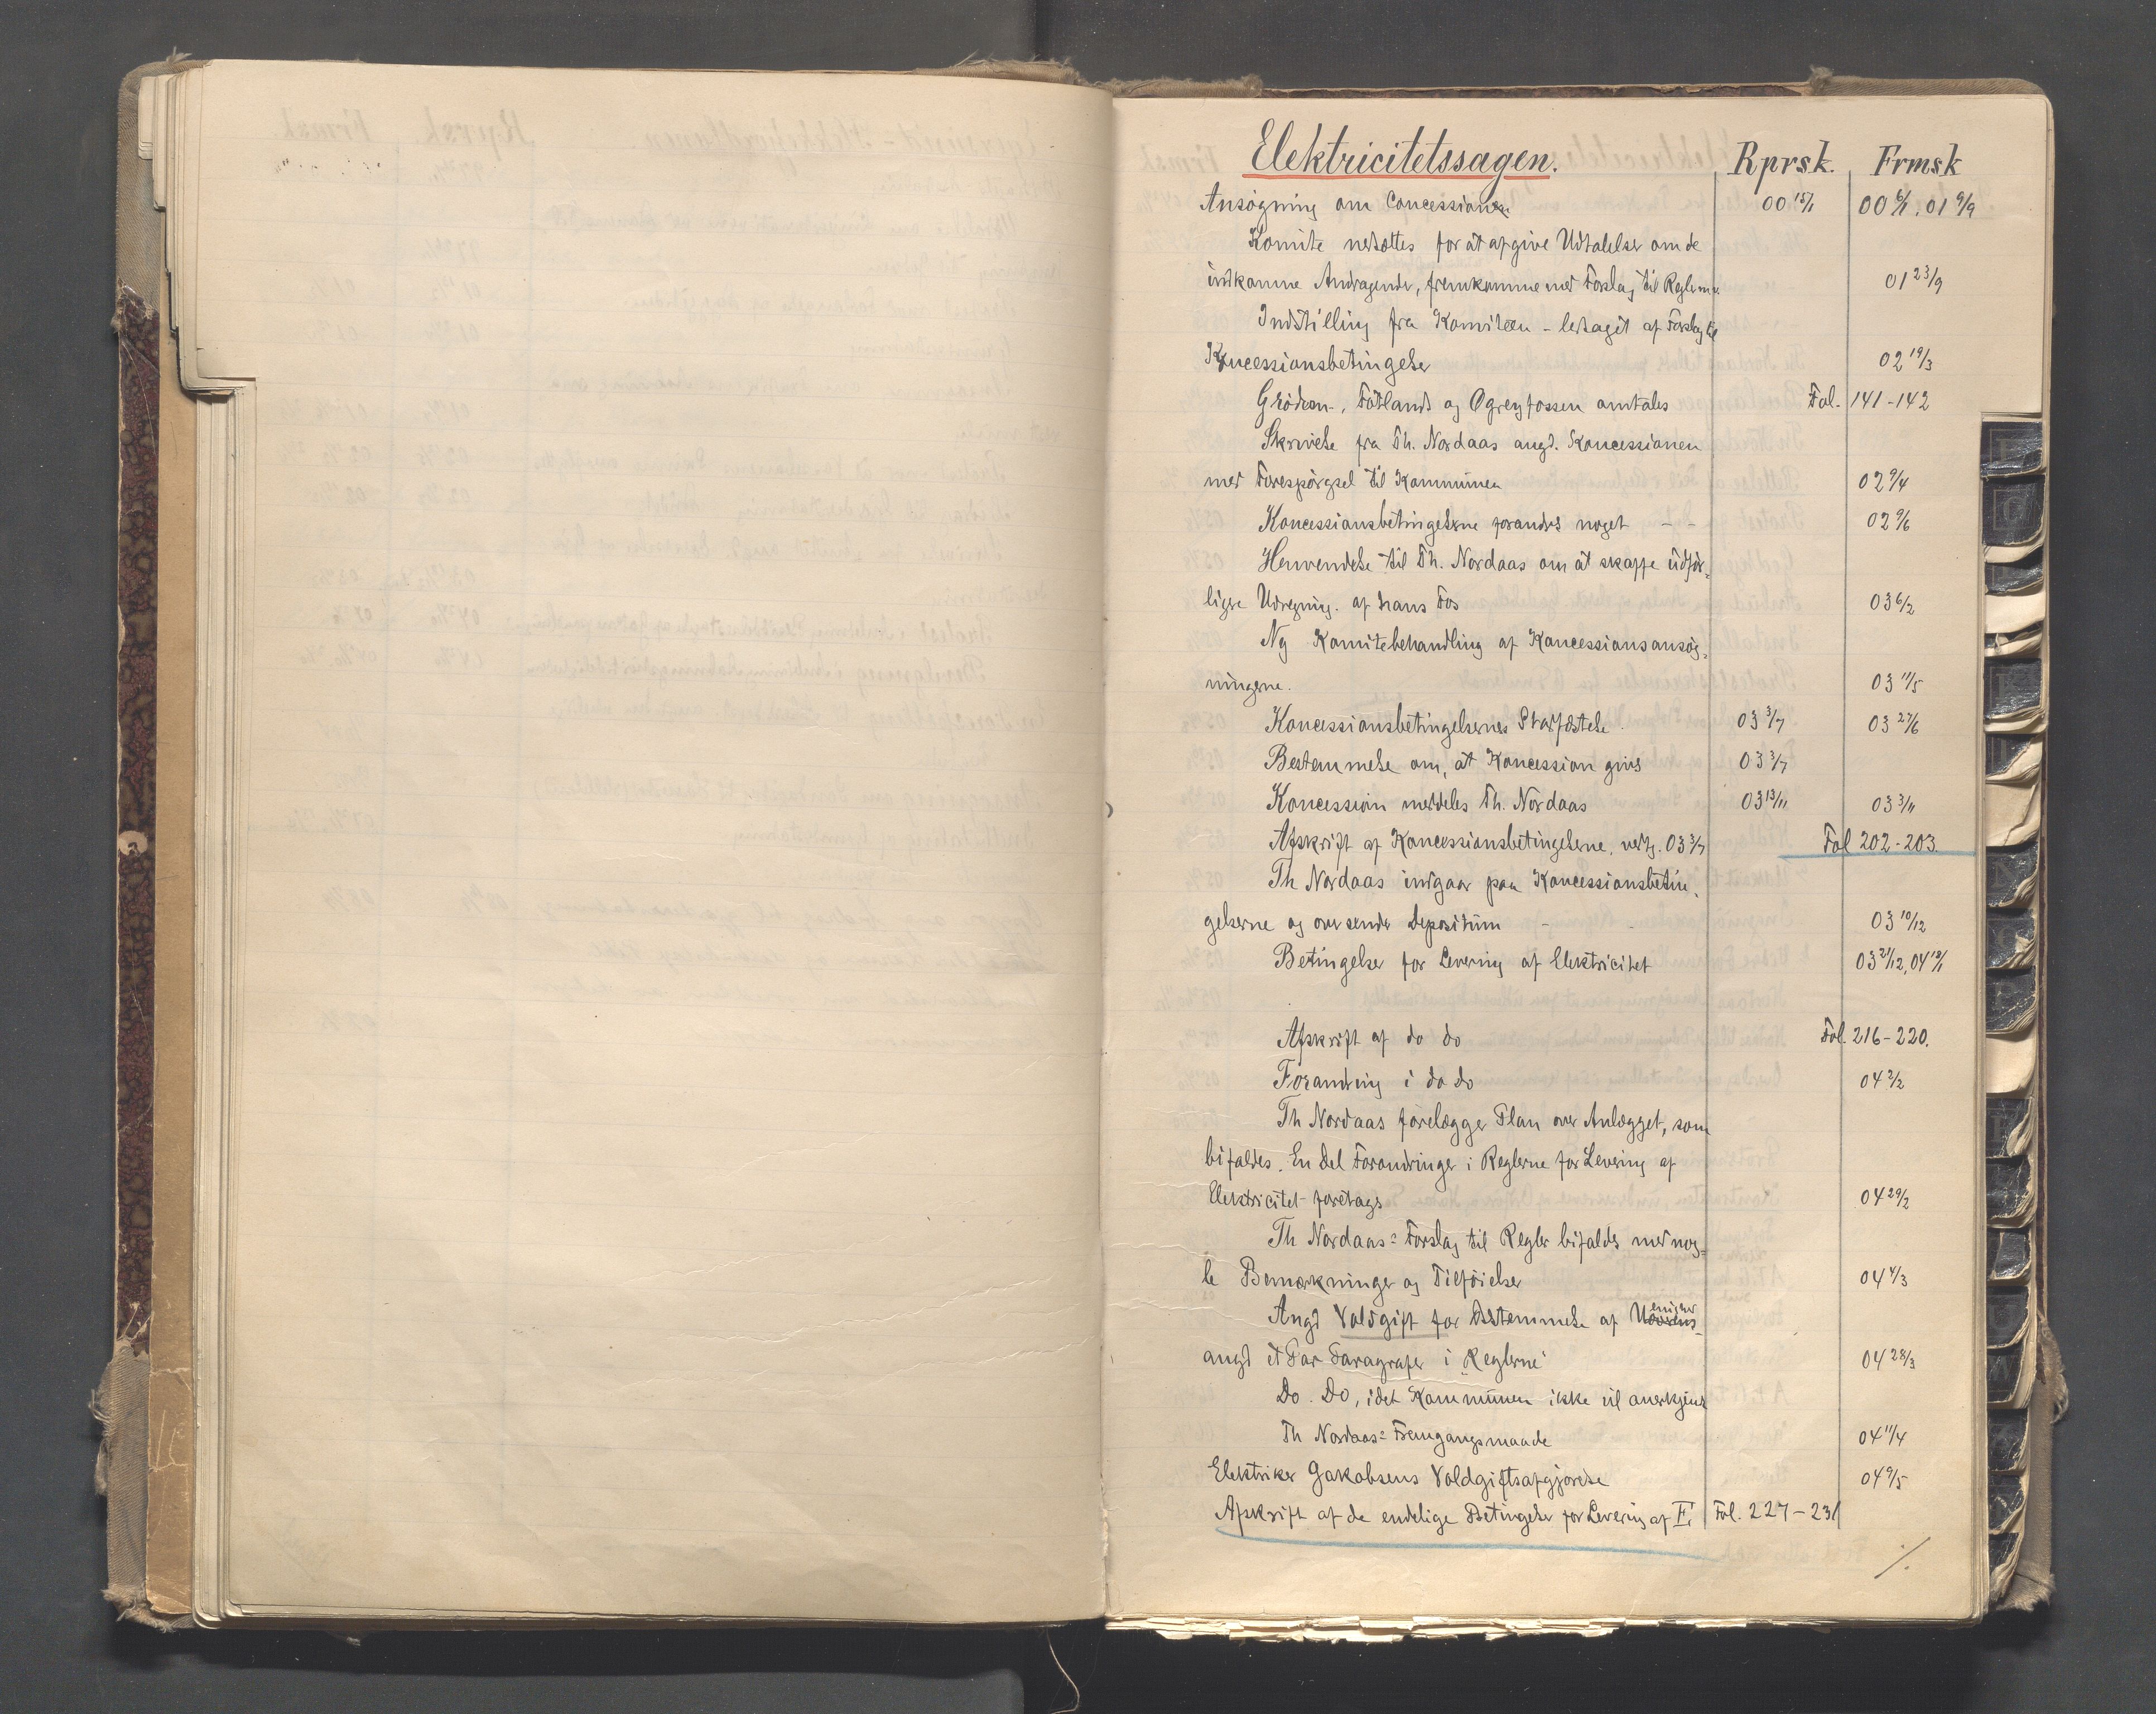 Elektricitetssagen. Rprsk. Frmsk
Ansøgning om Concessioner 00 15/1 00 6/1, 01 9/9
Komite nedsættes for at afgive Udtalelse om de
indkomne Andragender, fremkomme med Forslag til Reglement 01 23/9
Indstilling fra Komiteen – ledsaget af Forslag til
Koncessionsbetingelser 02 19/3
Grødem-, Fotlands og Øgreyfossen omtales Fol. 141-142
Skrivelse fra Th. Nordaas angd. Koncessionen
med Forespørgsel til Kommunen 02 9/4
Koncessionsbetingelserne forandres noget – – 02 9/6
Henvendelse til Th. Nordaas om at skaffe udfør=
ligere Udregning. af hans Fos 03 6/2
Ny Komitebehandling af Koncessionsansøg=
ningerne. 03 11/5
Koncessionsbetingelsernes Stadfæstelse. 03 3/7 03 27/6
Bestemmelse om, at Koncession gives 03 3/7
Koncession meddeles Th. Nordaas 03 13/11 03 3/11
Afskrift af Koncessionsbetingelserne, vedtg. 03 3/7 Fol 202-203.
Th Nordaas indgaar paa Koncessionsbetin=
gelserne og oversender Depositum – 03 10/12
Betingelser for Levering af Elektricitet 03 21/12, 04 12/1
Afskrift af do do Fol. 216-220.
Forandring i do do 04 2/2
Th Nordaas forelægger Plan over Anlægget, som
bifaldes. En Del Forandringer i Reglerne for Levering af
Elektricitet foretages 04 29/2
Th Nordaas= Forslag til Regler bifaldes med nog=
le Bemærkninger og Tilføielser 04 4/3
Angd Voldgift for Bestemmelse af Uenigher
angd et Par Paragrafer i Reglerne 04 28/3
Do. Do, idet Kommunen ikke vil anerkjende
Th Nordaas= Fremgangsmaade 04 11/4
Elektriker Jakobsens Voldgiftsafgjørelse 04 9/5
Afskrift af de endelige Betingelser for Levering af E. Fol. 227-231
./.